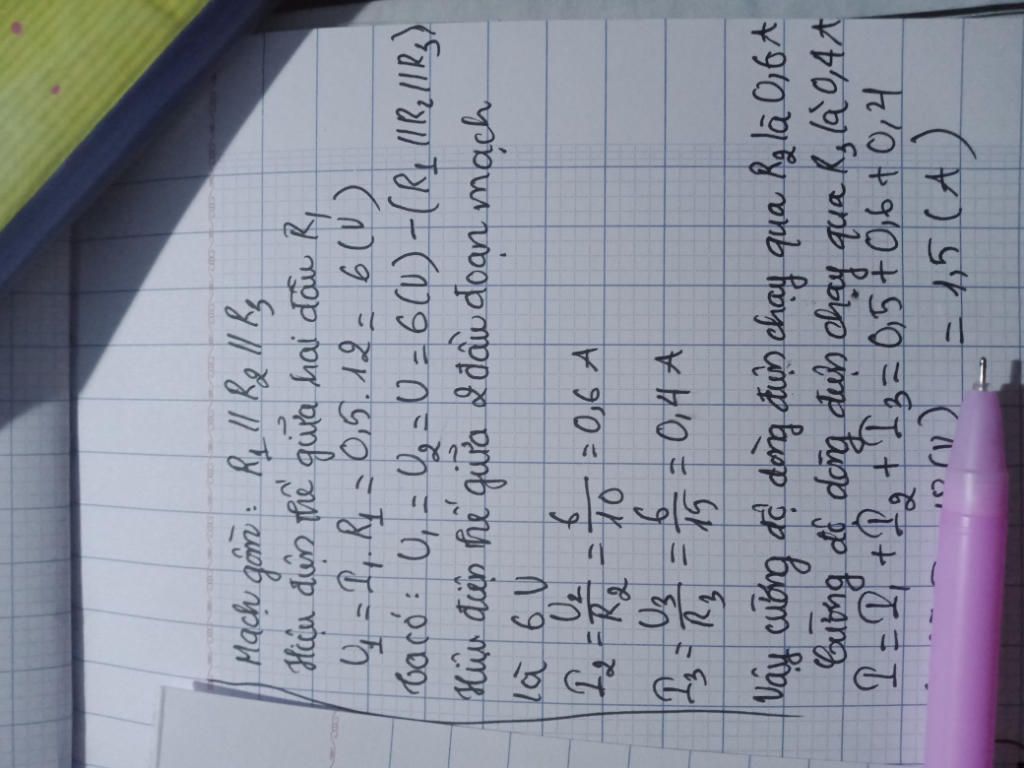 Mạch gồm: R₁ // R₂ // R₃
Hiệu điện thế giữa hai đầu R₁
U₁ = I₁. R₁ = 0,5. 12 = 6 (V)
Ta có: U₁ = U₂ = U = 6(V) - (R₁ // R₂ // R₃)
Hiệu điện thế giữa 2 đầu đoạn mạch
là 6 V
I₂ = U₂/R₂ = 6/10 = 0,6 A
I₃ = U₃/R₃ = 6/15 = 0,4 A
Vậy cường độ dòng điện chạy qua R₂ là 0,6 A
Cường độ dòng điện chạy qua R₃ là 0,4 A
I = I₁ + I₂ + I₃ = 0,5 + 0,6 + 0,4
= 1,5 (A)